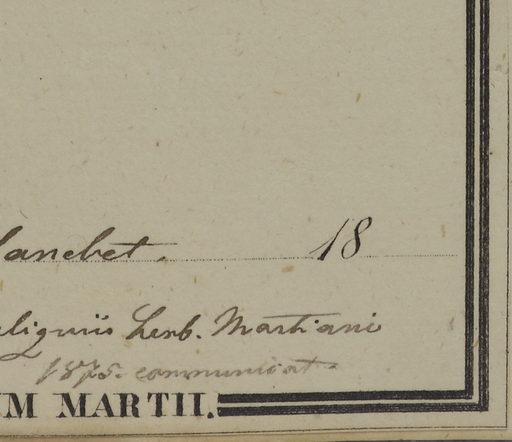 lanchet. 18
eliquiis herb. Martiani
1875. communicat.
UM MARTII.